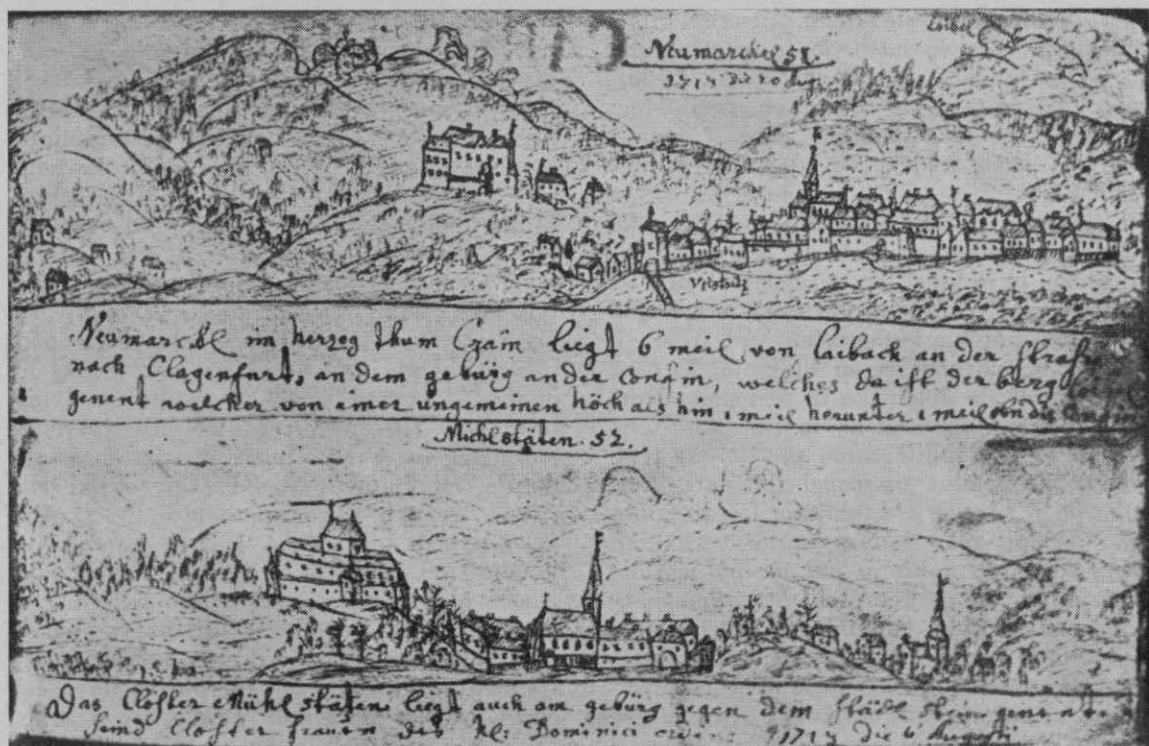 Loibel
Neumarckel 51.
1713 die 10
Veistriz
Neumarckl im herzog thum Crain liegt 6 meil von laibach an der straß
nach Clagenfurt, an dem gebürg an der confin, welches da ist der berg
genent welcher von einer ungemeinen höch als hin 1 meil herunter 1 meil
Michlstäten. 52.
Das Closter Mühlstäten liegt auch am gebürg gegen dem stättl stein genent
seind Closter frauen des Hl: Dominici 1713 die 6 Augusti